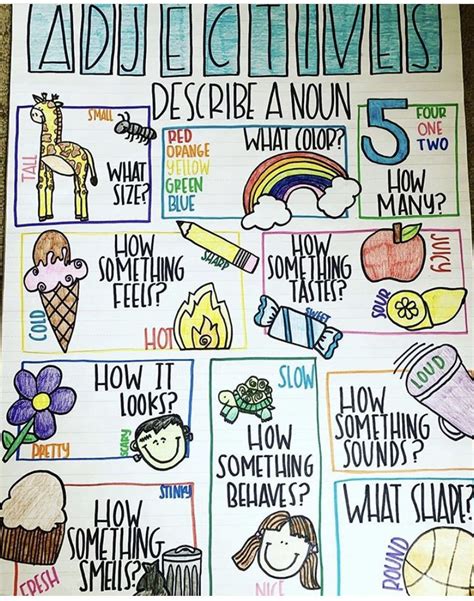 ADJECTIVES
DESCRIBE A NOUN
TALL
SMALL
WHAT
SIZE?
RED
ORANGE
YELLOW
GREEN
BLUE
WHAT COLOR?
5
FOUR
ONE
TWO
HOW
MANY?
COLD
HOW
SOMETHING
FEELS?
SHARP
HOT
HOW
SOMETHING
TASTES?
SWEET
JUICY
SOUR
PRETTY
HOW IT
LOOKS?
SCARY
SLOW
HOW
SOMETHING
BEHAVES?
NICE
HOW
SOMETHING
SOUNDS?
LOUD
FRESH
HOW
SOMETHING
SMELLS?
STINKY
WHAT SHAPE?
ROUND